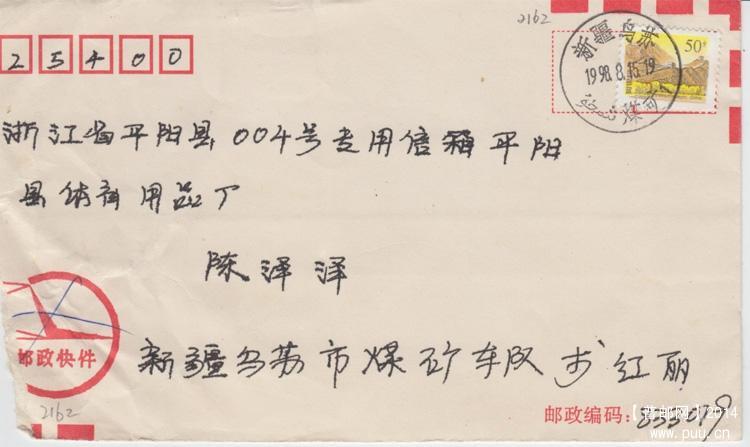 2162
新疆乌苏
50分
1998.8.15.19
煤矿
25400
浙江省平阳县004号专用信箱平阳
县体育用品厂
陈泽泽
新疆乌苏市煤矿车队 红丽
邮政快件
2162
邮政编码:
【普邮网】2014
www.puu.cn